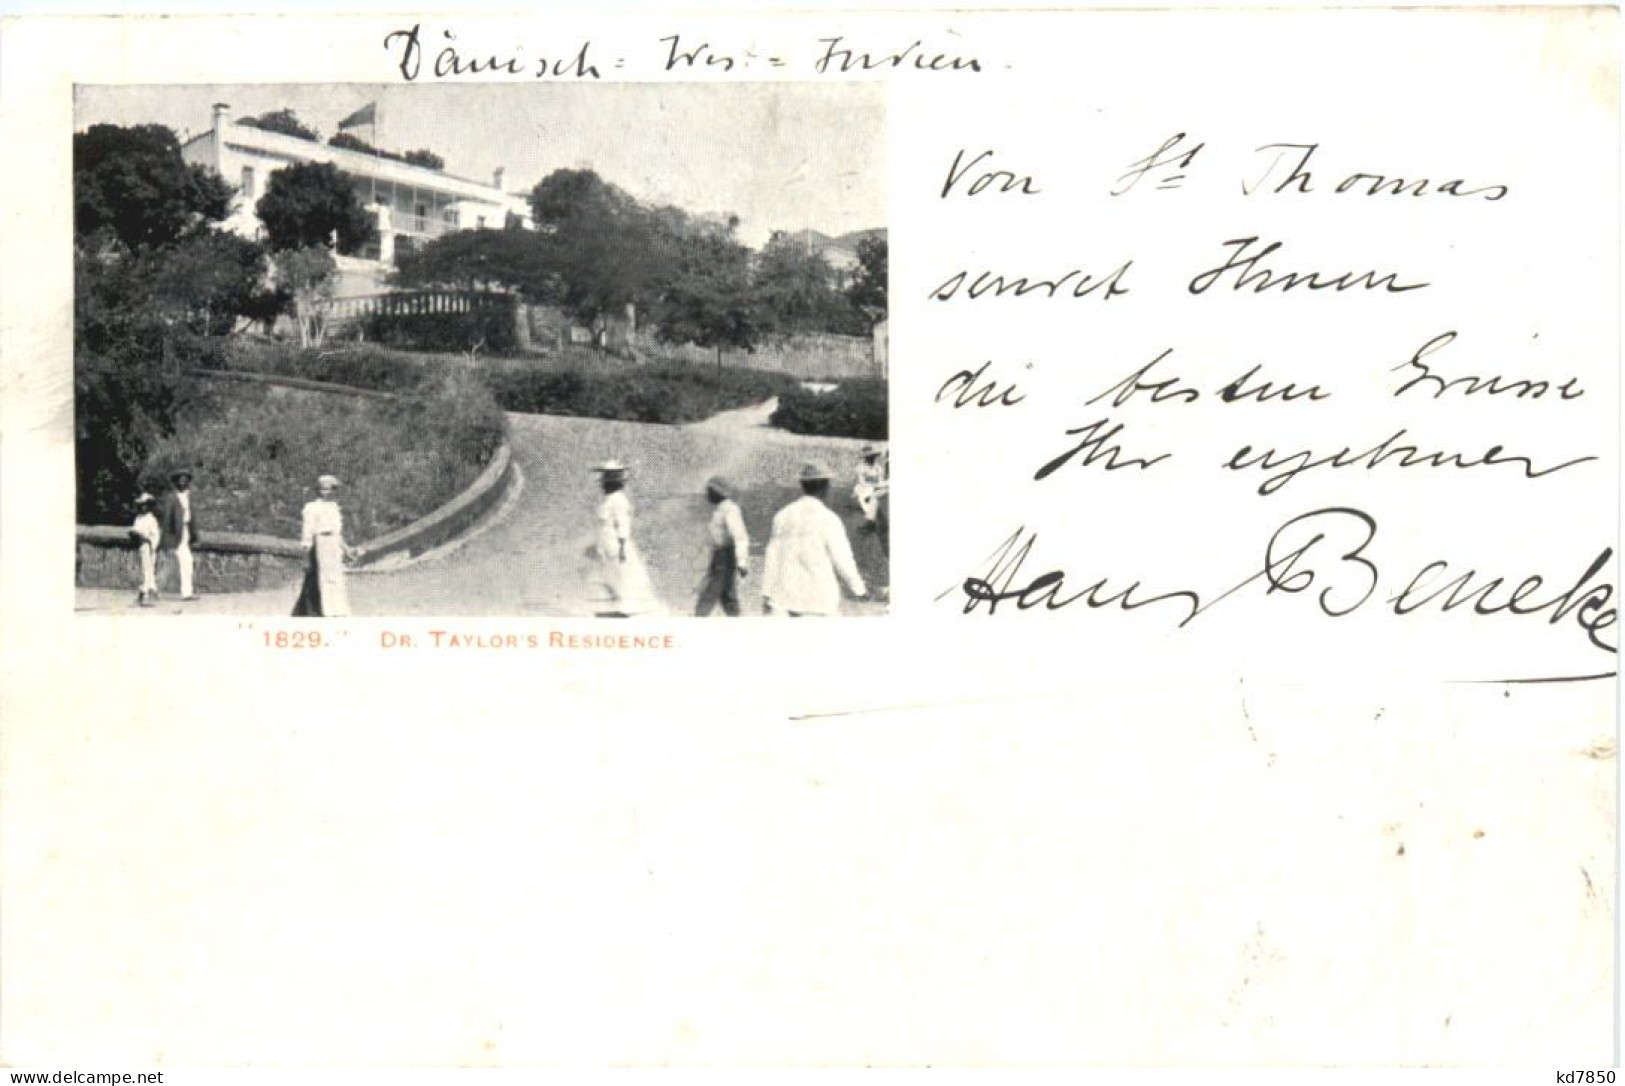 Dänisch = Wes = Indien.
Von St Thomas
sendet Ihnen
die besten Grüsse
Ihr ergebener
Hans Beneke
"1829." DR. TAYLOR'S RESIDENCE.
www.delcampe.net
kd7850